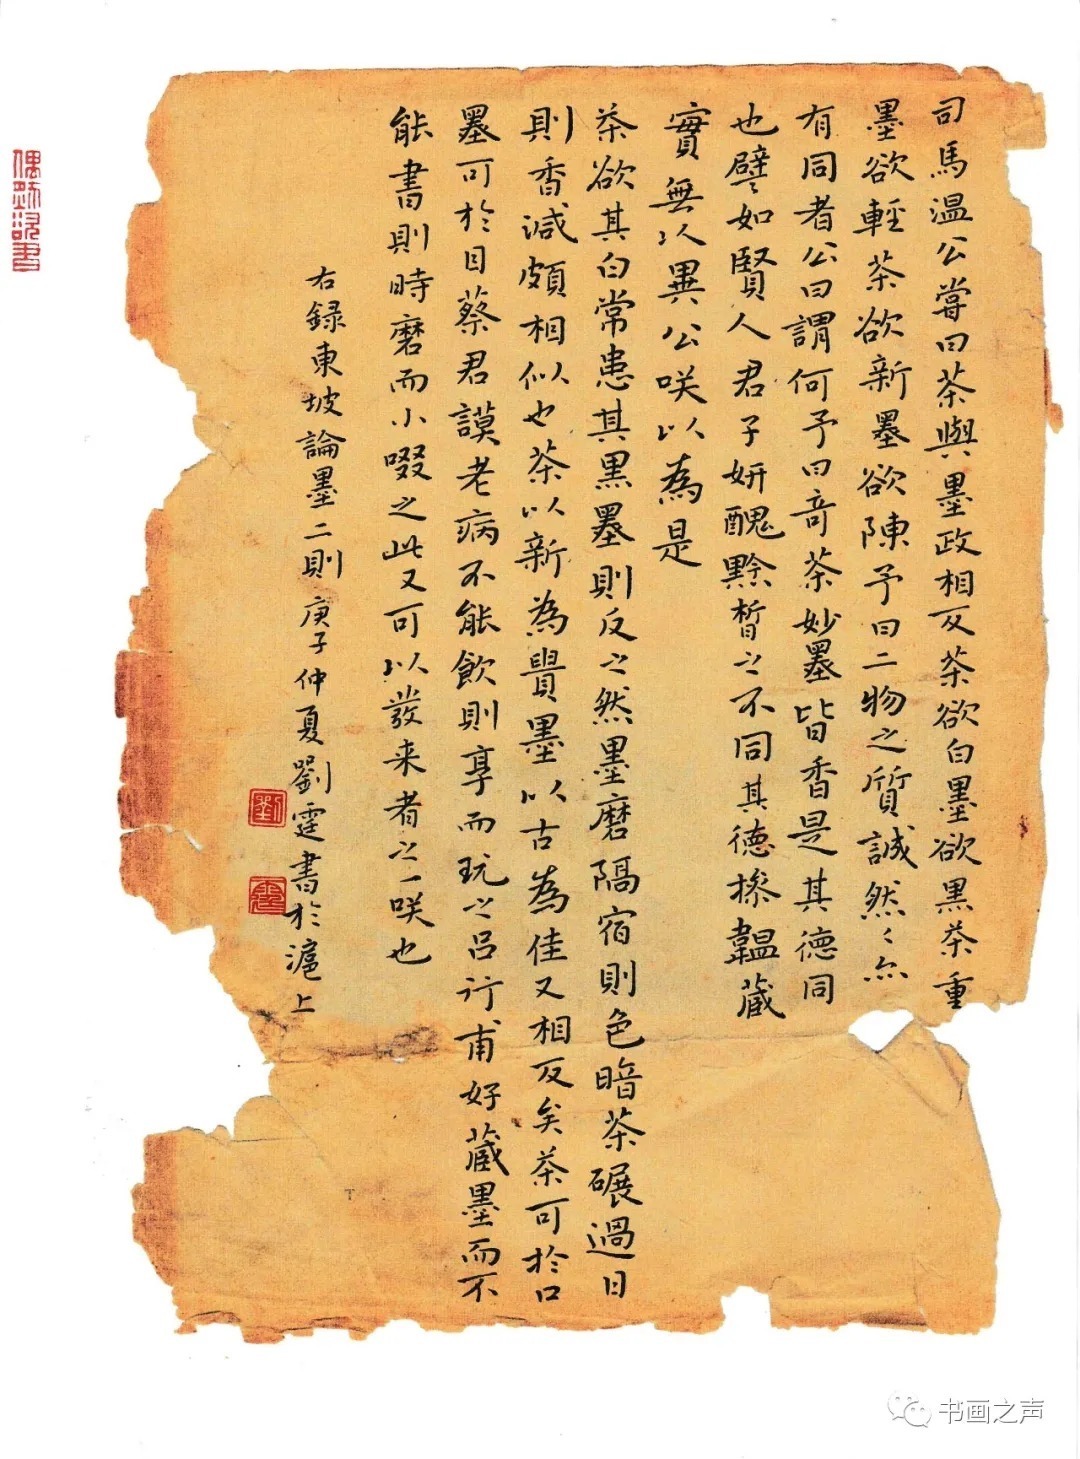 司馬溫公嘗曰茶與墨政相反茶欲白墨欲黑茶重
墨欲輕茶欲新墨欲陳予曰二物之質誠然〻亦
有同者公曰謂何予曰奇茶妙墨皆香是其德同
也譬如賢人君子妍醜黔皙之不同其德操韞藏
實無以異公咲以為是
茶欲其白常患其黑墨則反之然墨磨隔宿則色暗茶碾過日
則香減頗相似也茶以新為貴墨以古為佳又相反矣茶可於口
墨可於目蔡君謨老病不能飲則烹而玩之呂行甫好藏墨而不
能書則時磨而小啜之此又可以發来者之一咲也
右録東坡論墨二則 庚子仲夏劉霆書於滬上
劉
書画之声